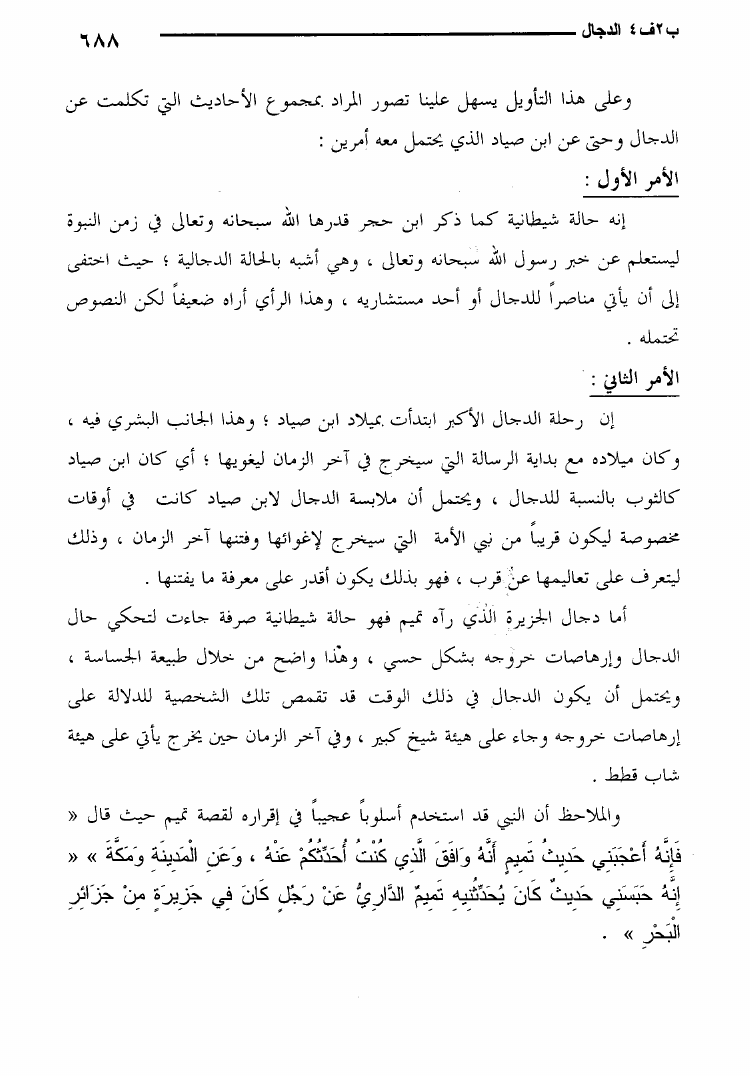 ب٢ف٤ الدجال
٦٨٨
وعلى هذا التأويل يسهل علينا تصور المراد بمجموع الأحاديث التي تكلمت عن
الدجال وحتى عن ابن صياد الذي يحتمل معه أمرين :
الأمر الأول :
إنه حالة شيطانية كما ذكر ابن حجر قدرها الله سبحانه وتعالى في زمن النبوة
ليستعلم عن خبر رسول الله سبحانه وتعالى ، وهي أشبه بالحالة الدجالية ؛ حيث اختفى
إلى أن يأتي مناصراً للدجال أو أحد مستشاريه ، وهذا الرأي أراه ضعيفاً لكن النصوص
تحتمله .
الأمر الثاني :
إن رحلة الدجال الأكبر ابتدأت بميلاد ابن صياد ؛ وهذا الجانب البشري فيه ،
وكان ميلاده مع بداية الرسالة التي سيخرج في آخر الزمان ليغويها ؛ أي كان ابن صياد
كالثوب بالنسبة للدجال ، ويحتمل أن ملابسة الدجال لابن صياد كانت في أوقات
مخصوصة ليكون قريباً من نبي الأمة التي سيخرج لإغوائها وفتنها آخر الزمان ، وذلك
ليتعرف على تعاليمها عن قرب ، فهو بذلك يكون أقدر على معرفة ما يفتنها .
أما دجال الجزيرة الذي رآه تميم فهو حالة شيطانية صرفة جاءت لتحكي حال
الدجال وإرهاصات خروجه بشكل حسي ، وهذا واضح من خلال طبيعة الجساسة ،
ويحتمل أن يكون الدجال في ذلك الوقت قد تقمص تلك الشخصية للدلالة على
إرهاصات خروجه وجاء على هيئة شيخ كبير ، وفي آخر الزمان حين يخرج يأتي على هيئة
شاب قطط .
والملاحظ أن النبي قد استخدم أسلوباً عجيباً في إقراره لقصة تميم حيث قال «
فَإِنَّهُ أَعْجَبَنِي حَدِيثُ تَمِيمٍ أَنَّهُ وَافَقَ الَّذِي كُنْتُ أُحَدِّثُكُمْ عَنْهُ ، وَعَنِ الْمَدِينَةِ وَمَكَّةَ » «
إِنَّهُ حَبَسَنِي حَدِيثٌ كَانَ يُحَدِّثُنِيهِ تَمِيمٌ الدَّارِيُّ عَنْ رَجُلٍ كَانَ فِي جَزِيرَةٍ مِنْ جَزَائِرِ
الْبَحْرِ » .